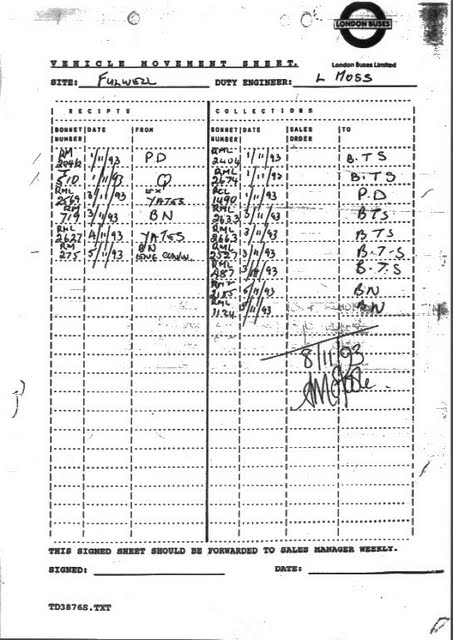 LONDON BUSES
London Buses Limited
VEHICLE MOVEMENT SHEET.
SITE: FULWELL DUTY ENGINEER: L MOSS
RECEIPTS COLLECTIONS
BONNET NUMBER DATE FROM BONNET NUMBER DATE SALES ORDER TO
RM 1/11/93 PD RML 2404 1/11/93 B.T.S
T 510 1/11/93 Q RML 2674 1/11/93 B.T.S
RML 2569 3/11/93 EX YATES RCL 1490 P.D
RM 719 3/11/93 BN RML 2633 3/11/93 BTS
RML 2627 4/11/93 YATES RML 2663 3/11/93 BTS
RM 275 5/11/93 BN RML 2527 B.T.S
RML 887 B.T.S
BN
RML 1124 BN
8/11/93
THIS SIGNED SHEET SHOULD BE FORWARDED TO SALES MANAGER WEEKLY.
SIGNED: DATE:
TD3876S.TXT